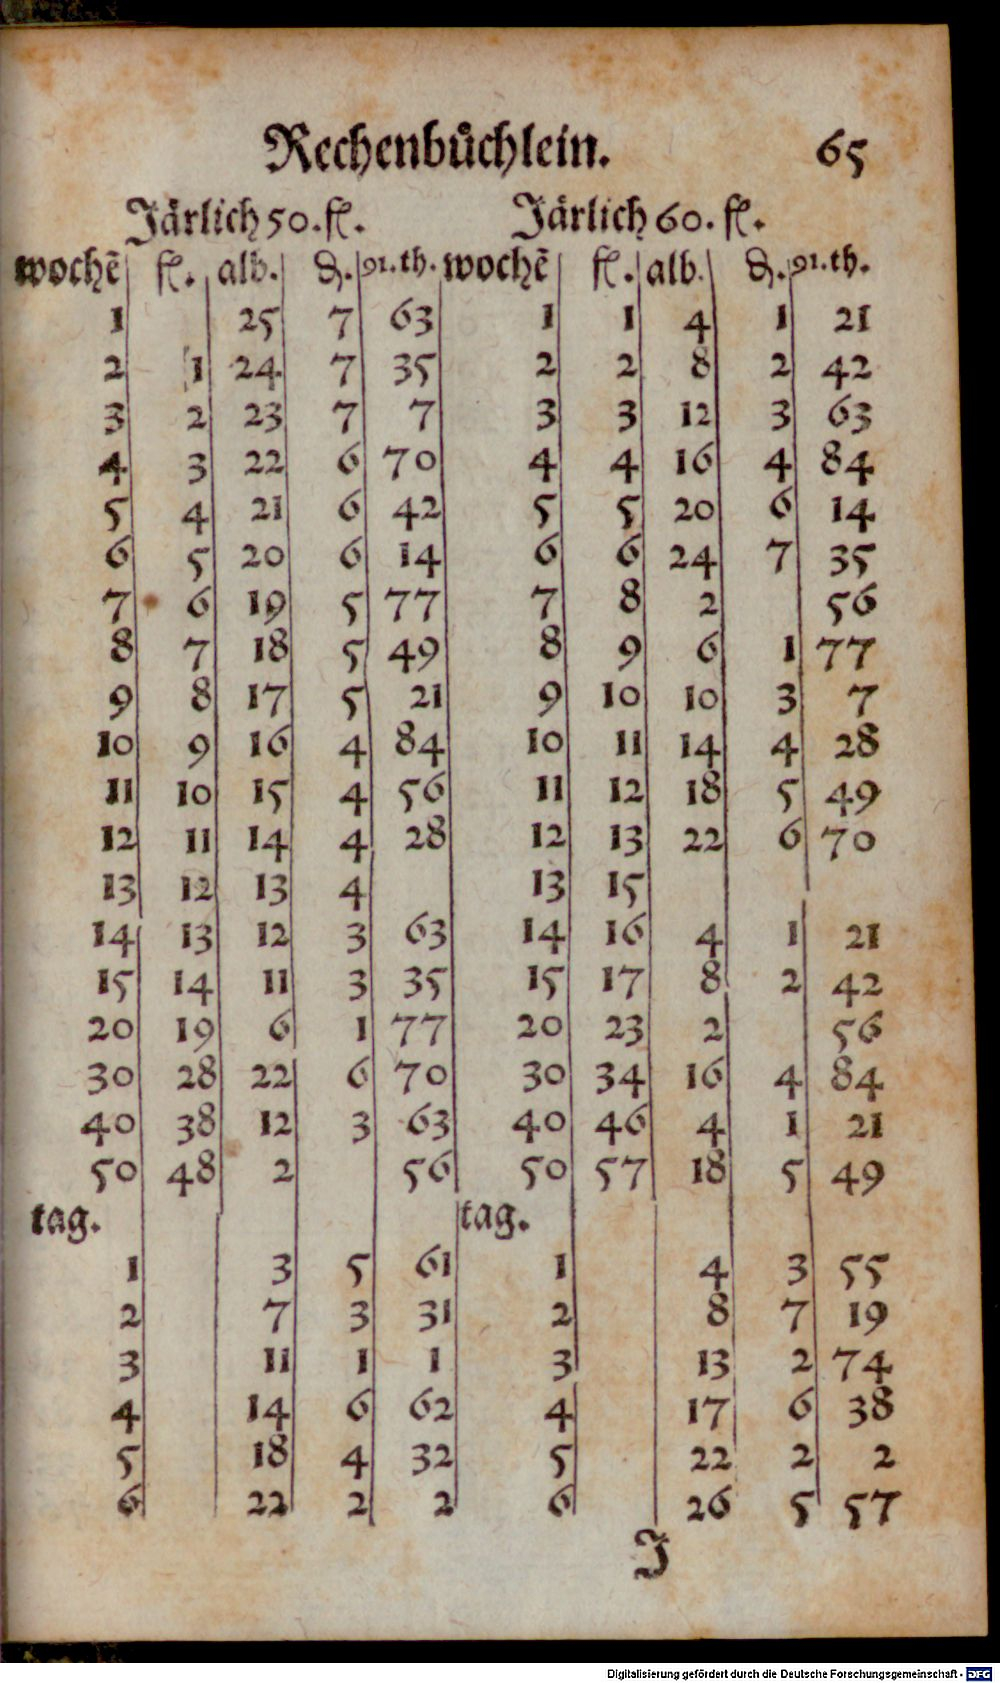 Rechenbůchlein. 65
Järlich 50. fl. Järlich 60. fl.
wochē fl. alb. ₰. 91.th. wochē fl. alb. ₰. 91.th.
1 25 7 63 1 1 4 1 21
2 1 24 7 35 2 2 8 2 42
3 2 23 7 7 3 3 12 3 63
4 3 22 6 70 4 4 16 4 84
5 4 21 6 42 5 5 20 6 14
6 5 20 6 14 6 6 24 7 35
7 6 19 5 77 7 8 2 56
8 7 18 5 49 8 9 6 1 77
9 8 17 5 21 9 10 10 3 7
10 9 16 4 84 10 11 14 4 28
11 10 15 4 56 11 12 18 5 49
12 11 14 4 28 12 13 22 6 70
13 12 13 4 13 15
14 13 12 3 63 14 16 4 1 21
15 14 11 3 35 15 17 8 2 42
20 19 6 1 77 20 23 2 56
30 28 22 6 70 30 34 16 4 84
40 38 12 3 63 40 46 4 1 21
50 48 2 56 50 57 18 5 49
tag. tag.
1 3 5 61 1 4 3 55
2 7 3 31 2 8 7 19
3 11 1 1 3 13 2 74
4 14 6 62 4 17 6 38
5 18 4 32 5 22 2 2
6 22 2 2 6 26 5 57
J
Digitalisierung gefördert durch die Deutsche Forschungsgemeinschaft - DFG